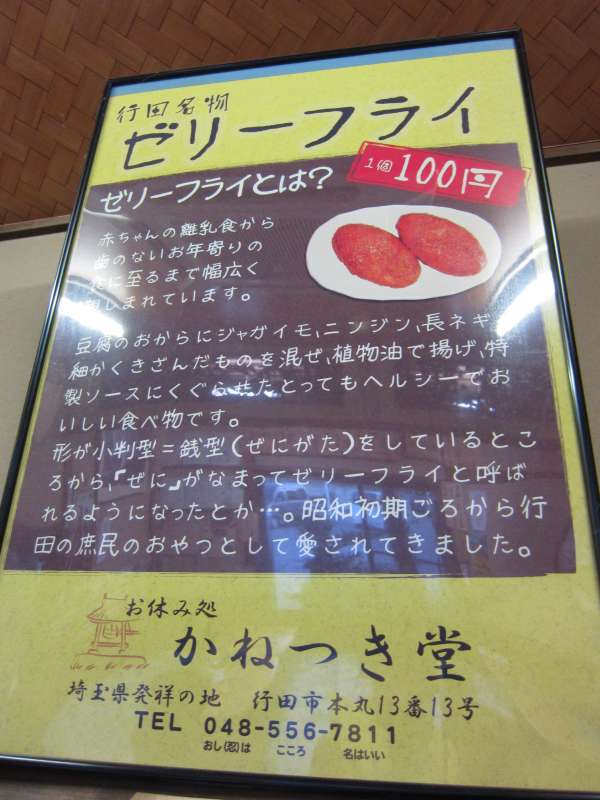 行田名物
ゼリーフライ
1個100円
ゼリーフライとは?
赤ちゃんの離乳食から
歯のないお年寄りの
に至るまで幅広く
しまれています。
豆腐のおからにジャガイモ、ニンジン、長ネギ
細かくきざんだものを混ぜ、植物油で揚げ、特
製ソースにくぐらせたとってもヘルシーでお
いしい食べ物です。
形が小判型=銭型(ぜにがた)をしているとこ
ろから、「ぜに」がなまってゼリーフライと呼ば
れるようになったとか…。昭和初期ごろから行
田の庶民のおやつとして愛されてきました。
お休み処
かねつき堂
埼玉県発祥の地 行田市本丸13番13号
TEL 048-556-7811
おし(忍)は こころ 名はいい